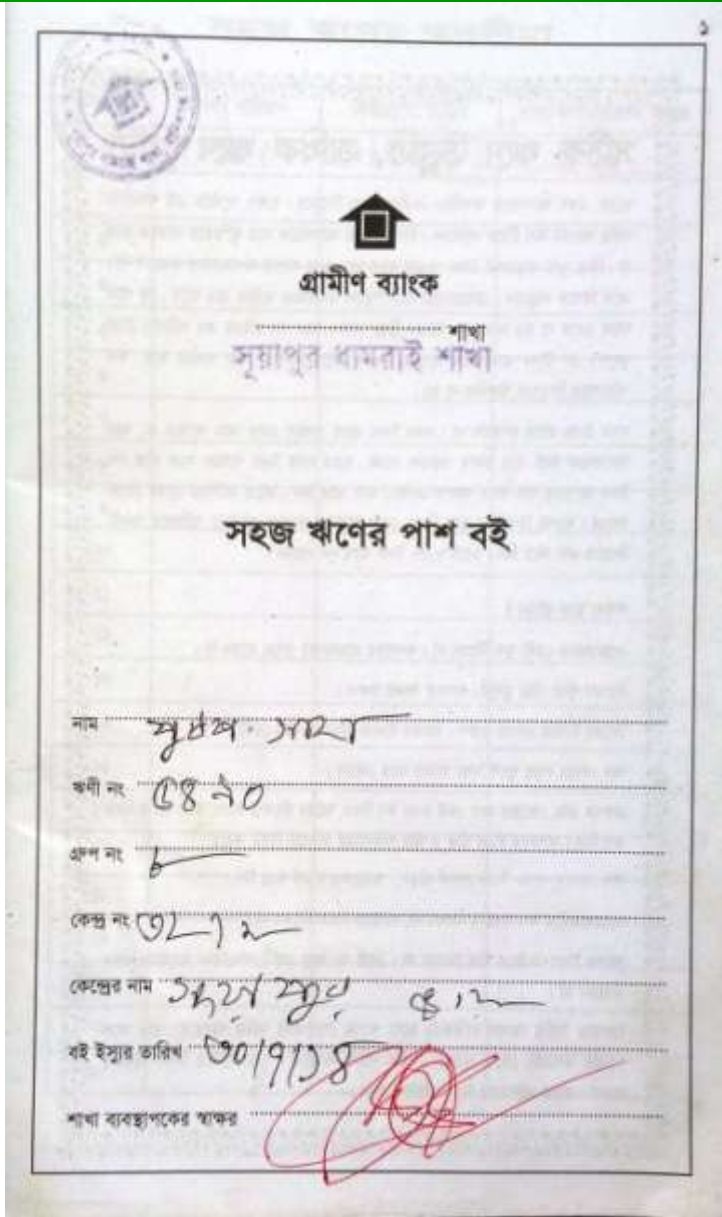 ১
গ্রামীণ ব্যাংক
শাখা
সূয়াপুর ধামরাই শাখা
সহজ ঋণের পাশ বই
নাম পুষ্প সাহা
ঋণী নং ৫৪৯০
গ্রুপ নং ৮
কেন্দ্র নং
কেন্দ্রের নাম সূয়াপুর
বই ইস্যুর তারিখ ৩০/৭/১৪
শাখা ব্যবস্থাপকের স্বাক্ষর